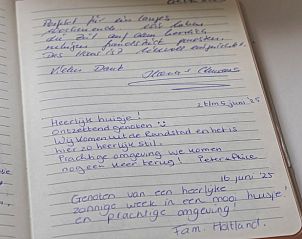 Perfekt für ein langes
Wochenende. Wir haben
die Zeit auf dem
ruhigen
Das Haus ist liebevoll
Vielen Dank
2 t/m 5 juni '25
Heerlijk huisje!
Ontzettend genoten
Wij komen uit de Randstad en het is
hier zo heerlijk stil.
Prachtige omgeving. We komen
nog een keer terug! Peter &
16 juni '25
Genoten van een heerlijke
zonnige week in een mooi huisje!
en prachtige omgeving!
Fam. Hatland.